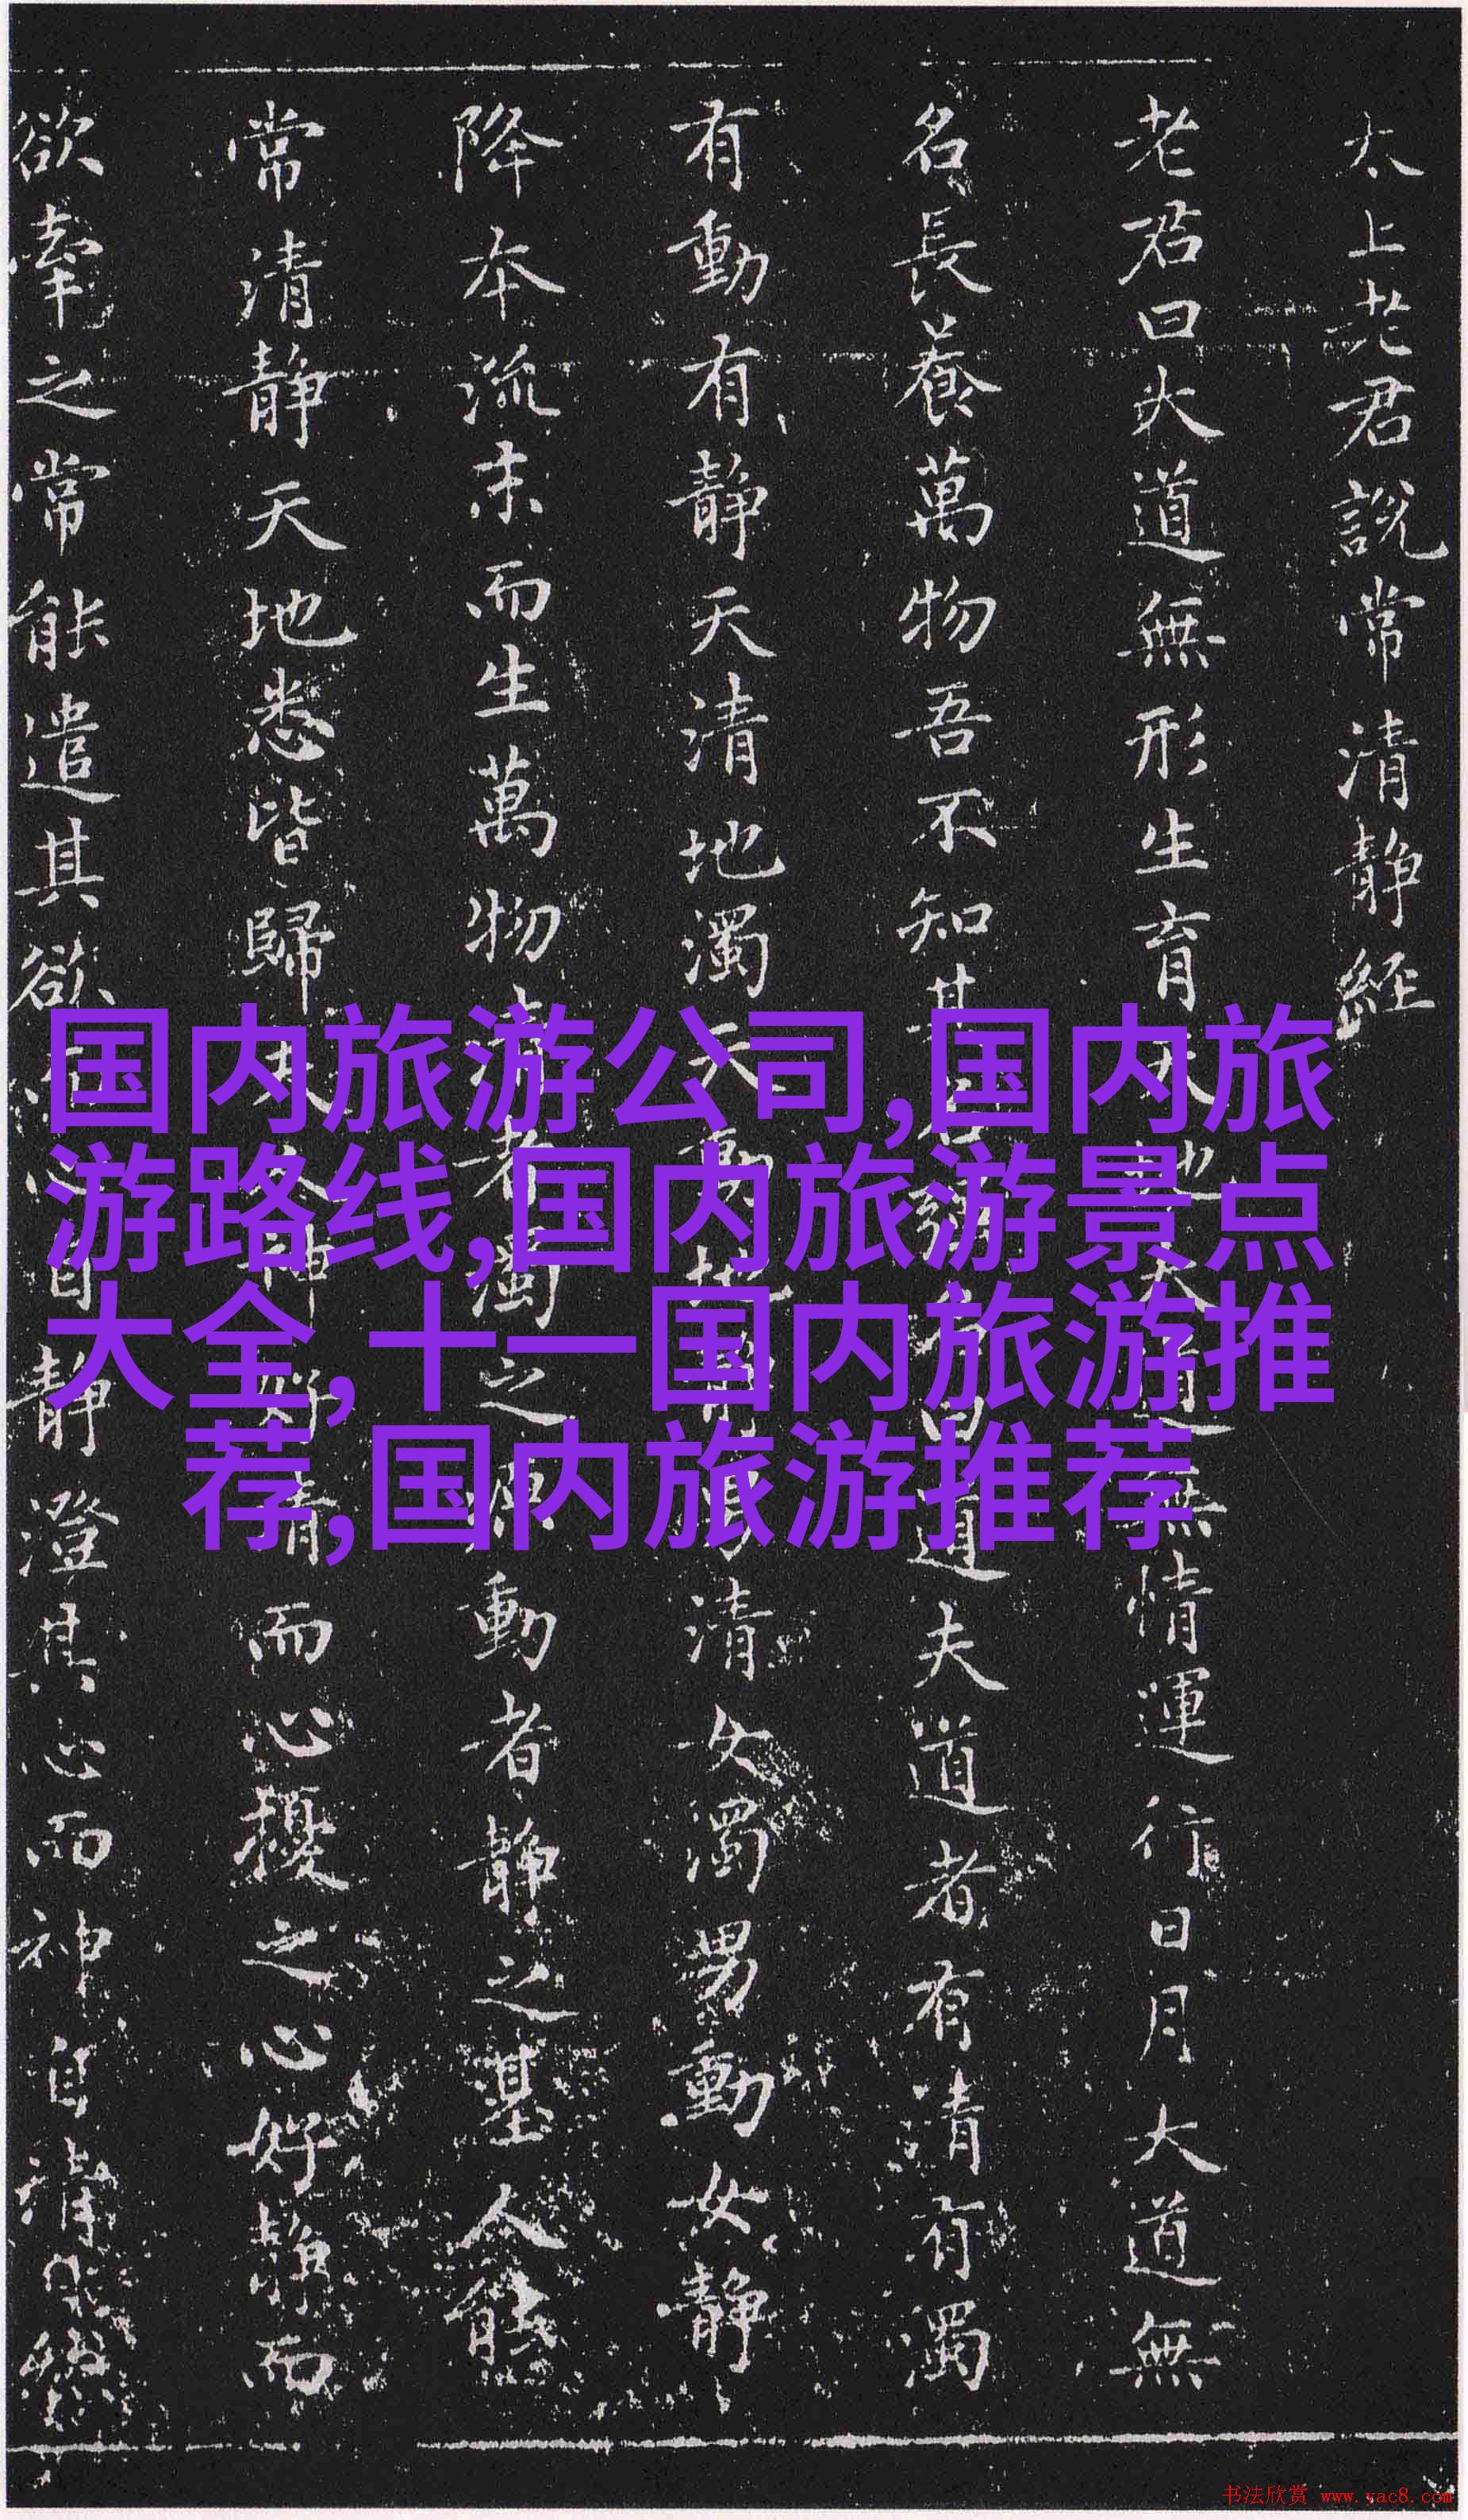 太上老君說常清静經
老君曰大道無形生育天地大道無情運行日月大道無
名長養萬物吾不知其名強名曰道夫道者有清有濁
有動有静天清地濁天動地静男清女濁男動女静
降本流末而生萬物清者濁之源動者静之基人能
常清静天地悉皆歸夫人神好清而心擾之心好静而
欲牽之常能遣其欲而心自静澄其心而神自清自然
国内旅游公司,国内旅
游路线,国内旅游景点
大全,十一国内旅游推
荐,国内旅游推荐
书法欣赏 www.yac8.com